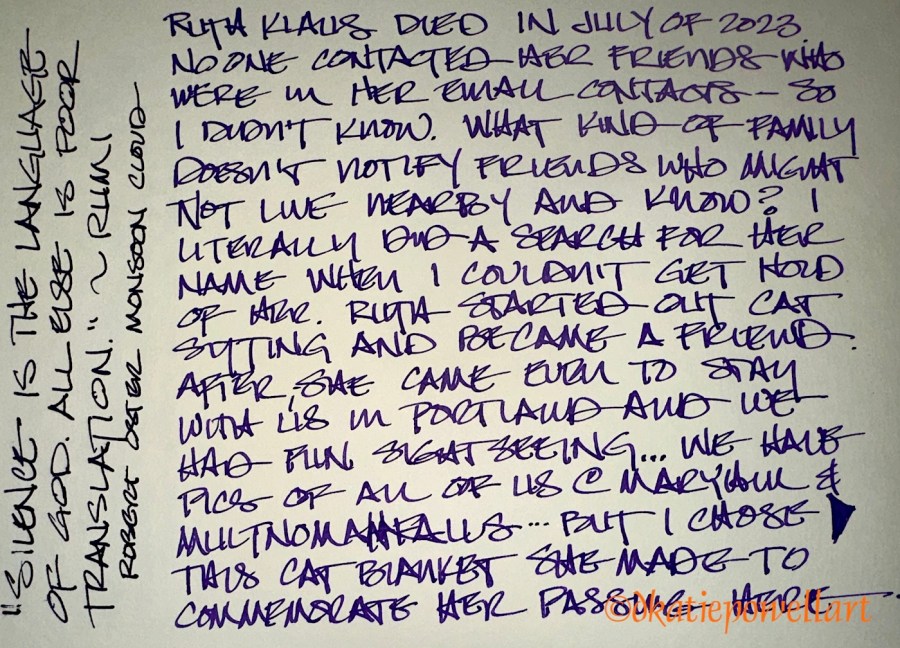 "SILENCE IS THE LANGUAGE
OF GOD. ALL ELSE IS POOR
TRANSLATION." ~ RUMI
ROBERT OSTER MONSOON CLOUD
RUTH KLAUS DIED IN JULY OF 2023.
NO ONE CONTACTED HER FRIENDS WHO
WERE IN HER EMAIL CONTACTS – SO
I DIDN'T KNOW. WHAT KIND OF FAMILY
DOESN'T NOTIFY FRIENDS WHO MIGHT
NOT LIVE NEARBY AND KNOW? I
LITERALLY DID A SEARCH FOR HER
NAME WHEN I COULDN'T GET HOLD
OF HER. RUTH STARTED OUT CAT
SITTING AND BECAME A FRIEND.
AFTER, SHE CAME EVEN TO STAY
WITH US IN PORTLAND AND WE
HAD FUN SIGHTSEEING... WE HAVE
PICS OF ALL OF US @ MARYHILL &
MULTNOMAH FALLS... BUT I CHOSE
THIS CAT BLANKET SHE MADE TO
COMMEMORATE HER PASSING HERE
©dkatiepowellart